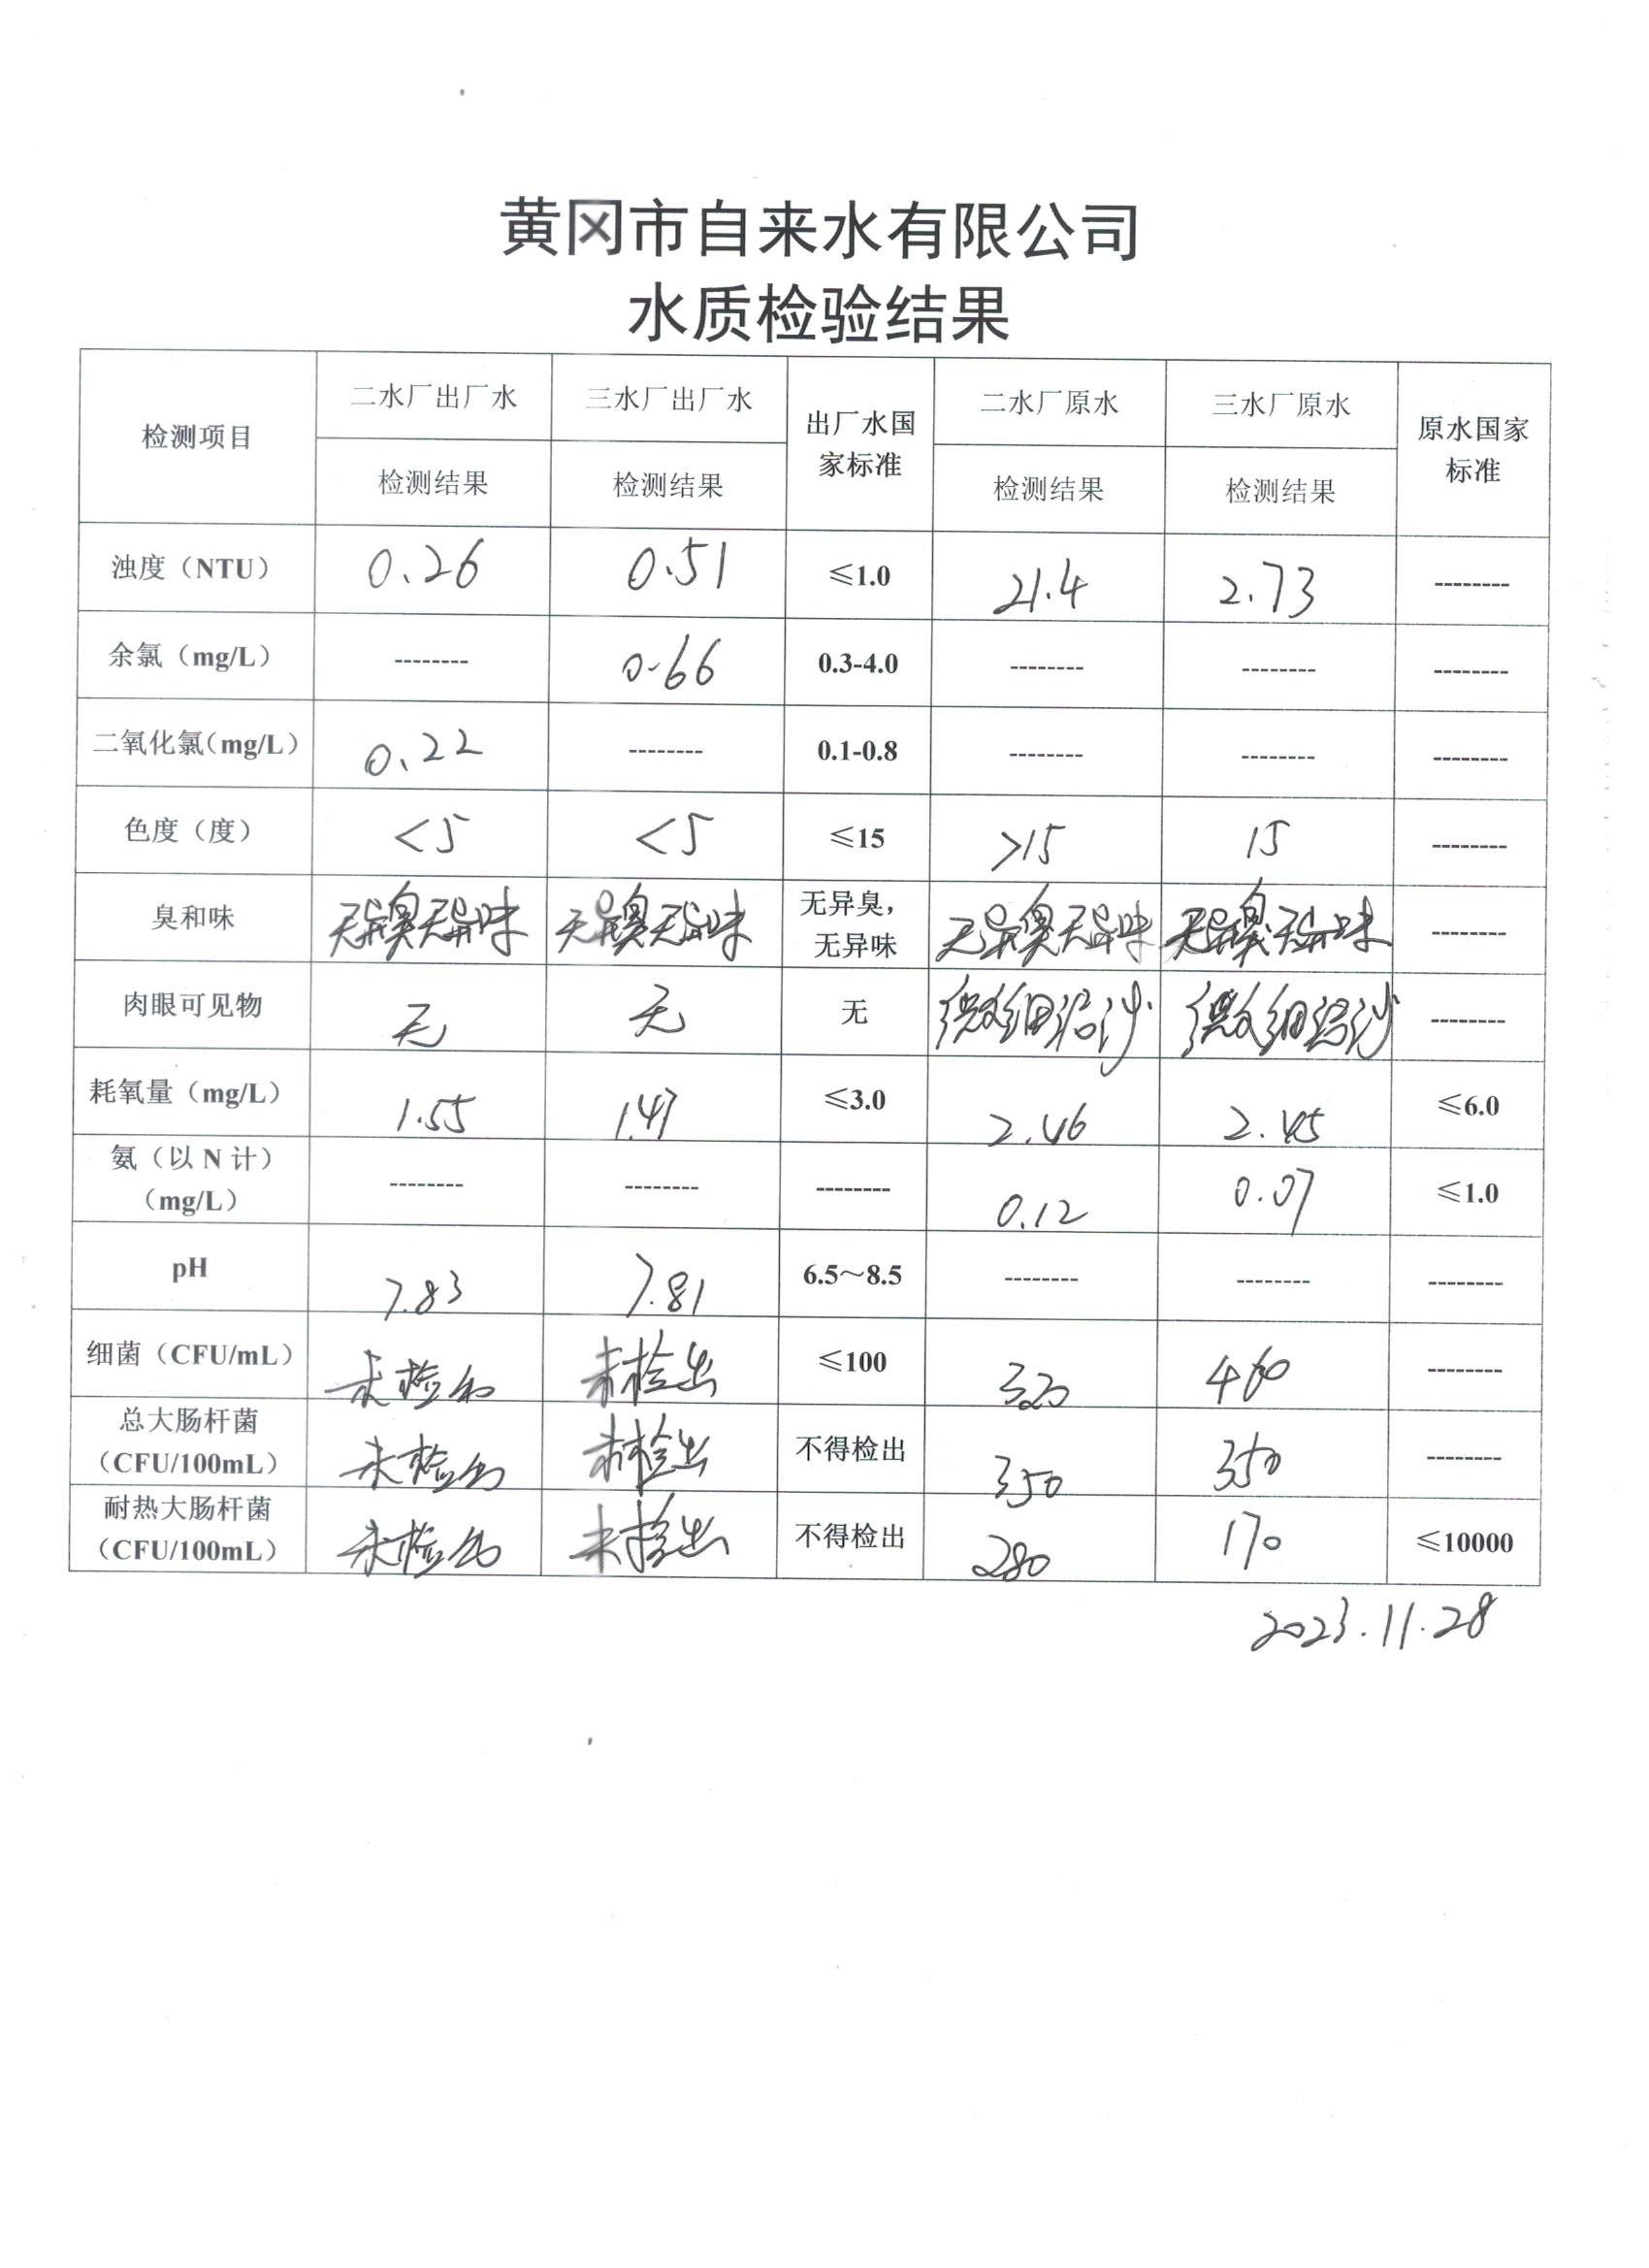 黄冈市自来水有限公司
水质检验结果
检测项目 二水厂出厂水 三水厂出厂水 出厂水国家标准 二水厂原水 三水厂原水 原水国家标准
检测结果 检测结果 检测结果 检测结果
浊度（NTU） 0.26 0.51 ≤1.0 21.4 2.73 --------
余氯（mg/L） -------- 0.66 0.3-4.0 -------- -------- --------
二氧化氯（mg/L） 0.22 -------- 0.1-0.8 -------- -------- --------
色度（度） <5 <5 ≤15 >15 15 --------
臭和味 无异臭无异味 无异臭无异味 无异臭，无异味 无异臭无异味 无异臭无异味 --------
肉眼可见物 无 无 无 微细泥沙 微细泥沙 --------
耗氧量（mg/L） 1.55 1.47 ≤3.0 2.46 2.45 ≤6.0
氨（以 N 计）（mg/L） -------- -------- -------- 0.12 0.07 ≤1.0
pH 7.83 7.81 6.5～8.5 -------- -------- --------
细菌（CFU/mL） 未检出 未检出 ≤100 320 460 --------
总大肠杆菌（CFU/100mL） 未检出 未检出 不得检出 350 350 --------
耐热大肠杆菌（CFU/100mL） 未检出 未检出 不得检出 280 170 ≤10000
2023.11.28